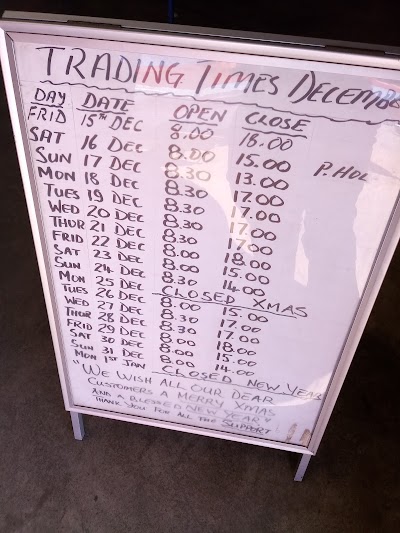 TRADING TIMES DECEMBER
DAY DATE OPEN CLOSE
FRID 15TH DEC 8.00 18.00
SAT 16 DEC 8.00 15.00 P. HOL
SUN 17 DEC 8.30 13.00
MON 18 DEC 8.30 17.00
TUES 19 DEC 8.30 17.00
WED 20 DEC 8.30 17.00
THUR 21 DEC 8.30 17.00
FRID 22 DEC 8.00 18.00
SAT 23 DEC 8.00 15.00
SUN 24 DEC 8.30 14.00
MON 25 DEC CLOSED XMAS
TUES 26 DEC 8.00 15.00
WED 27 DEC 8.30 17.00
THUR 28 DEC 8.30 17.00
FRID 29 DEC 8.00 18.00
SAT 30 DEC 8.00 15.00
SUN 31 DEC 8.00 14.00
MON 1ST JAN CLOSED NEW YEAR
"WE WISH ALL OUR DEAR
CUSTOMERS A MERRY XMAS
AND A BLESSED NEW YEAR"
THANK YOU FOR ALL THE SUPPORT